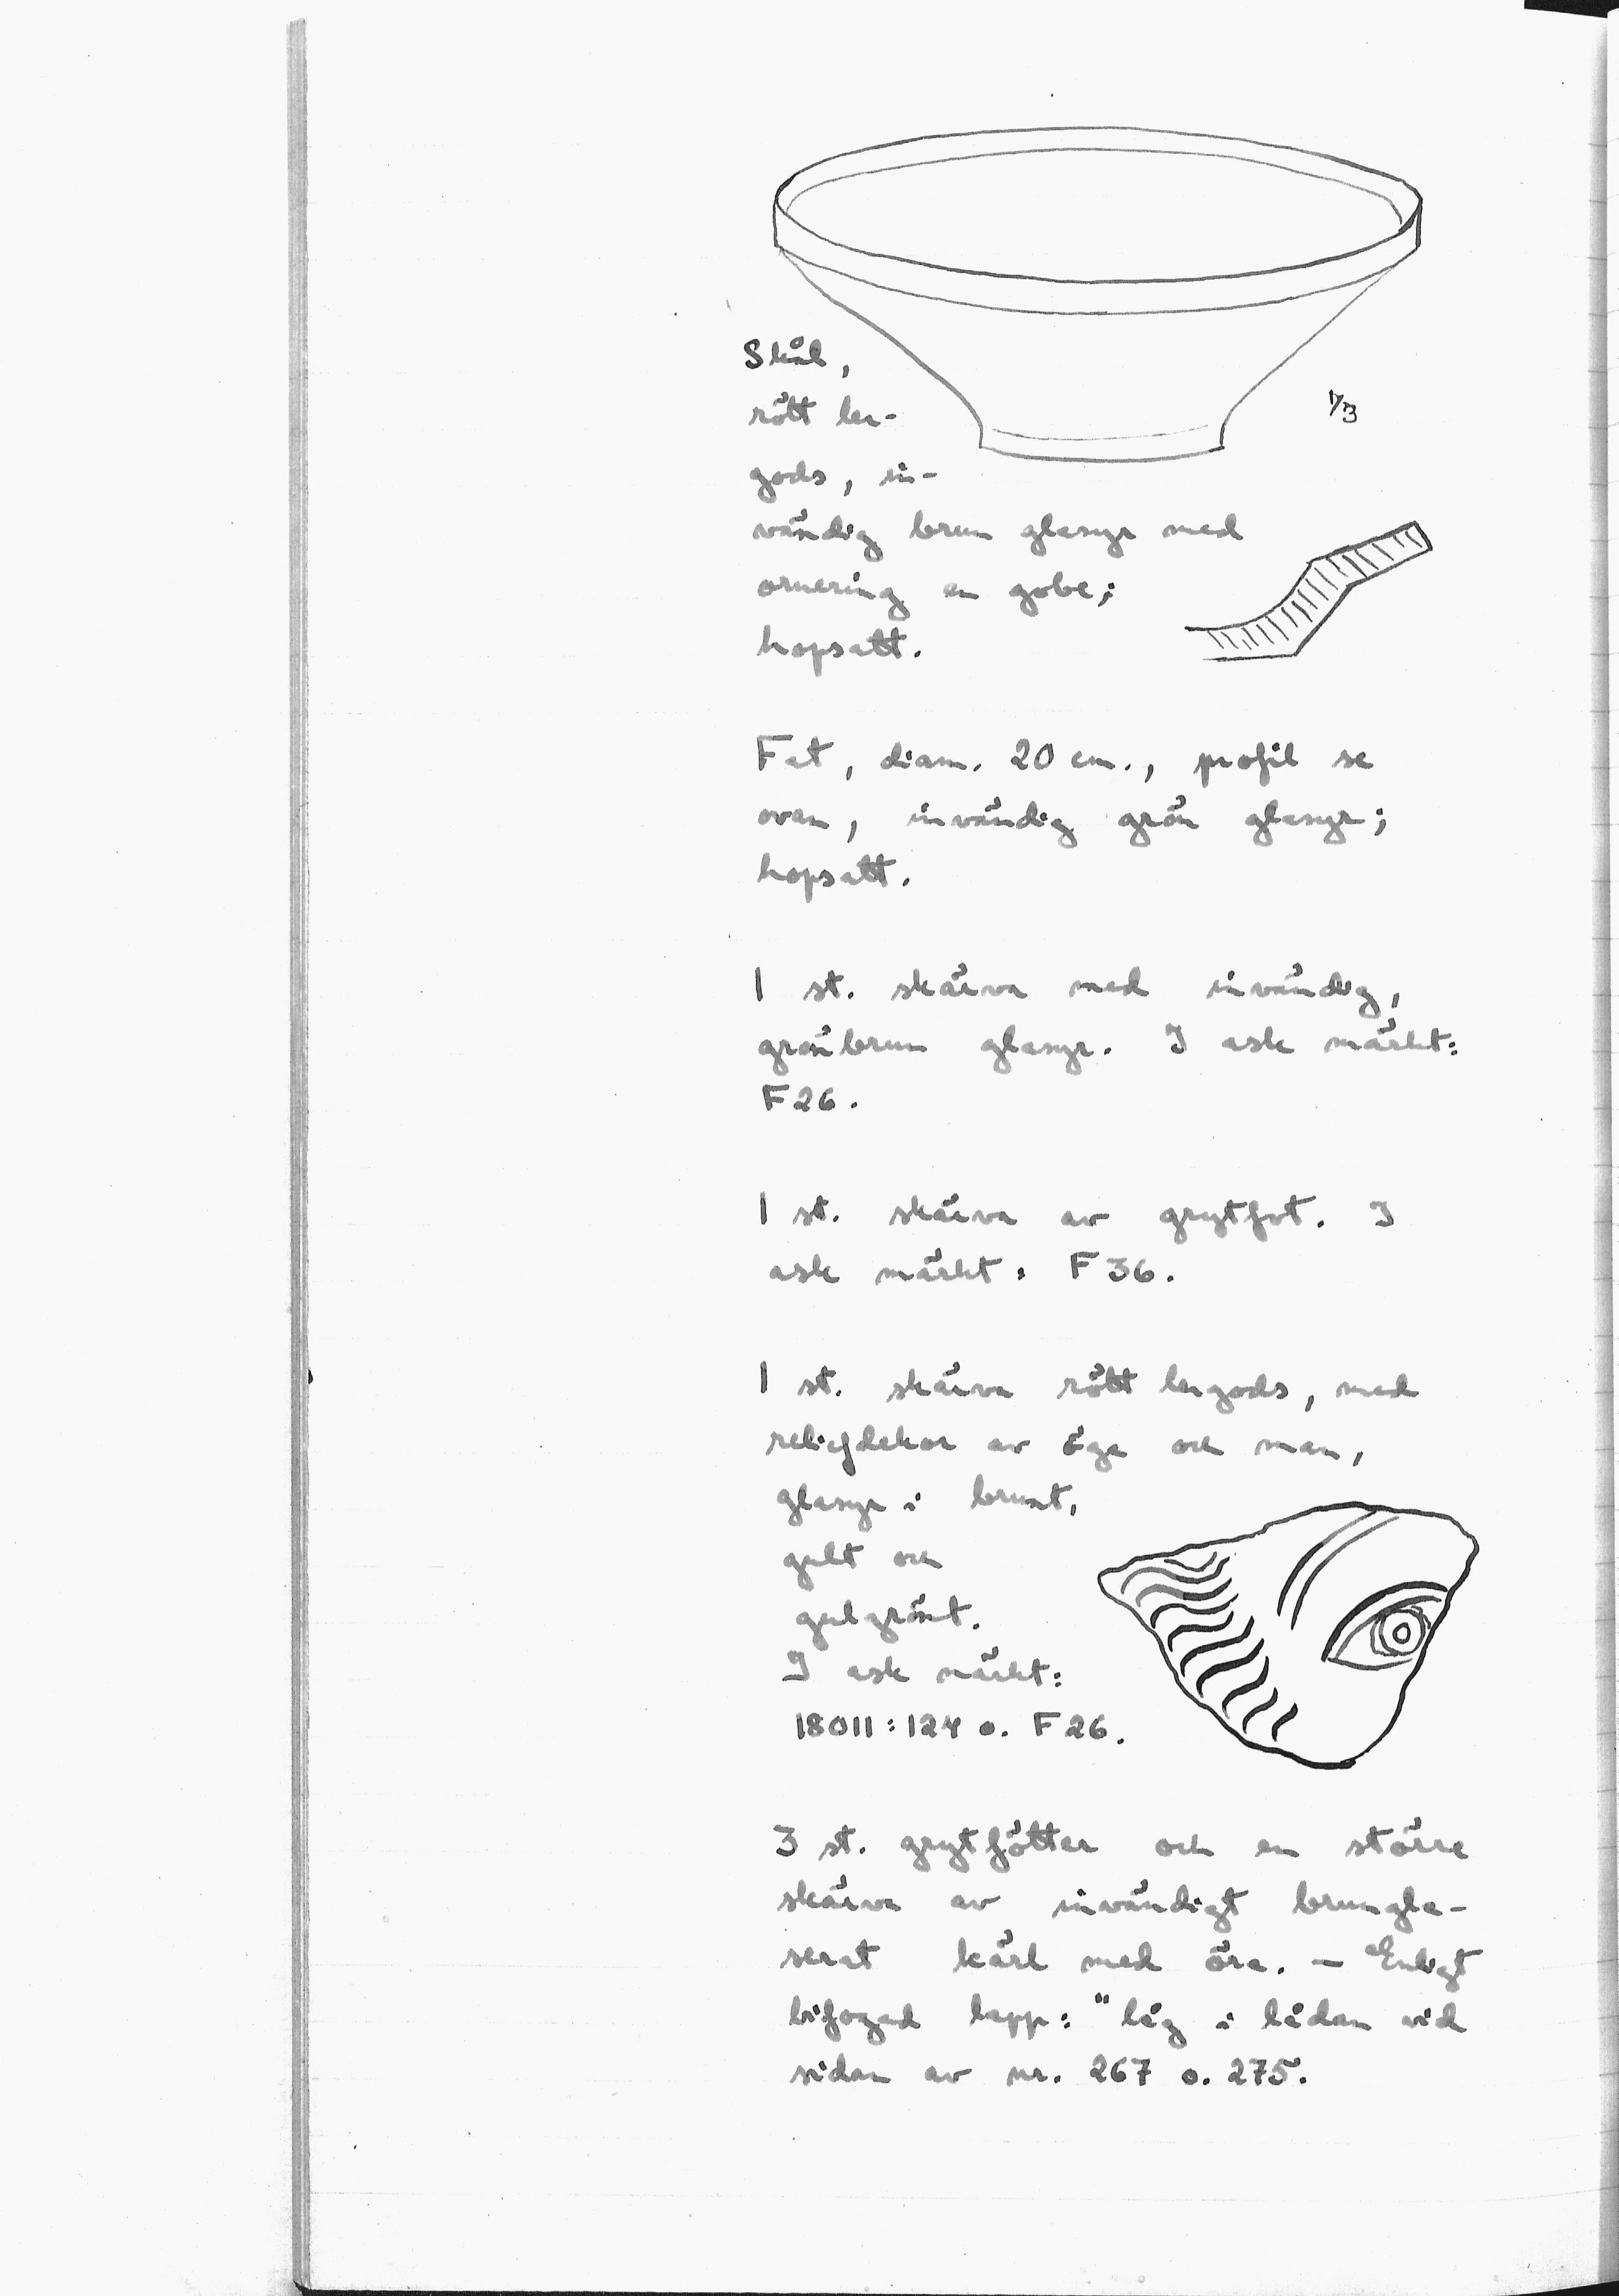 Skål,
rött ler-
1/3
gods, in-
vändig brun glasyr med
ornering en gobe;
hopsatt.
Fat, diam. 20 cm., profil se
ovan, invändig grön glasyr;
hopsatt.
1 st. skärva med invändig,
grönbrun glasyr. I ask märkt:
F26.
1 st. skärva av grytfot. I
ask märkt: F36.
1 st. skärva rött lergods, med
reliefdekor av öga och man,
glasyr i brunt,
gult och
gulgrönt.
I ask märkt:
18011:124 o. F26.
3 st. grytfötter och en större
skärva av invändigt brungla-
serat kärl med öra. — Enligt
bifogad lapp: "låg i lådan vid
sidan av nr. 267 o. 275.